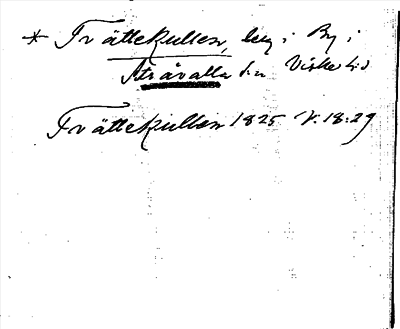 * Trättekullen, beg i By i
Stråvalla s:n Viske hd
Trättekullen 1825 V: 18:29